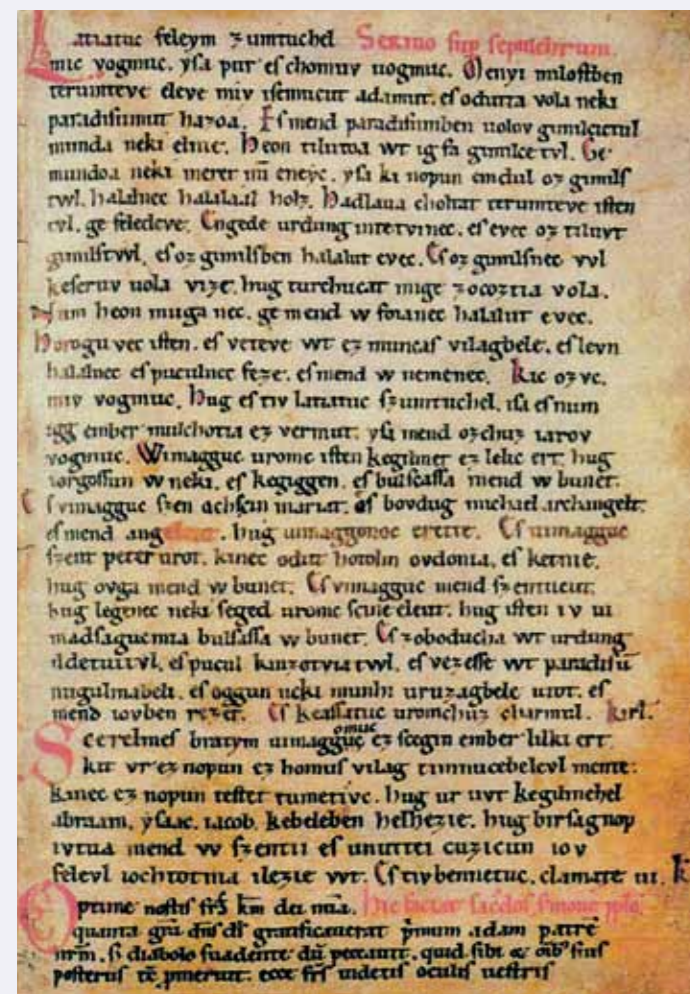 Latiatuc feleym zumtuchel Sermo sup sepulchrum.
mic vogmuc. ysa pur es chomuv uogmuc. Menyi milostben
terumteve eleve miv isemucut adamut. es odutta vola neki
paradisumut hazoa. Es mend paradisumben uolov gimilcictul
munda neki elnie. Heon tilutoa wt ig fa gimilce tvl. Ge
mundoa neki meret nū eneyc. ysa ki nopun emdul oz gimils
twl. halalnec halalaal holz. Hadlaua choltat terumteve isten
tvl. ge feledeve. Engede urdung intetvinec. es evec oz tiluvt
gimilstwl. es oz gimilsben halalut evec. Es oz gimilsnec vvl
keseruv uola vize. hug turchucat mige zocoztia vola.
Num heon muga nec. ge mend w foianec halalut evec.
Horogu vec isten. es veteve wt ez muncas vilagbele. es levn
halalnec es puculnec feze. es mend w nemenec. Kic ozvc.
miv vogmuc. Hug es tiv latiatuc szumtuchel. isa es num
igg ember mulchotia ez vermut. ysa mend ozchuz iarov
vogmuc. Wimagguc uromc isten kegilmet ez lelic ert. hug
iorgossun w neki. es kegiggen. es bulsassa mend w bunet.
Es vimagguc szen achscin mariat. es bovdug michael archangelt.
es mend angelcut. hug uimaggonoc erette. Es uimagguc
szent peter urot. kinec odut hotolm ovdonia. es ketnie.
hug ovga mend w bunet. Es vimagguc mend szentucut.
hug legenec neki seged uromc scine eleut. hug isten iv ui
madsagucmia bulsassa w bunet. Es zoboducha wt urdung
ildetuitvl. es pucul kinzotviatwl. es vezesse wt paradisū
nugulmabeli. es oggun neki munhi uruzagbele utot. es
mend iovben rezet. Es keassatuc uromchuz charmul. Kirl.
Scerelmes bratym uimaggomuc ez scegin ember lilki ert.
kit vr ez nopun ez homus vilag timnucebelevl mente.
kinec ez nopun testet tumetivc. hug ur uvt kegilmehel
abraam. ysaac. iacob. kebeleben helhezie. hug birsagnop
ivtua mend w szentii es unuttei cuzicun iov
felevl iochtotnia ilezie wt. Es tiv bennetuc. clamate III. K
Optime nostis frs̄ km̄ dei mīa. Hic faciat sacdos smone pplo.
quanta grā dn̄s ds̄ gratificaverat p̄mum adam patrē
nr̄m. si diabolo suadente dū peccavit. quid sibi &
posteris
ecce frs̄ videtis oculis vestris